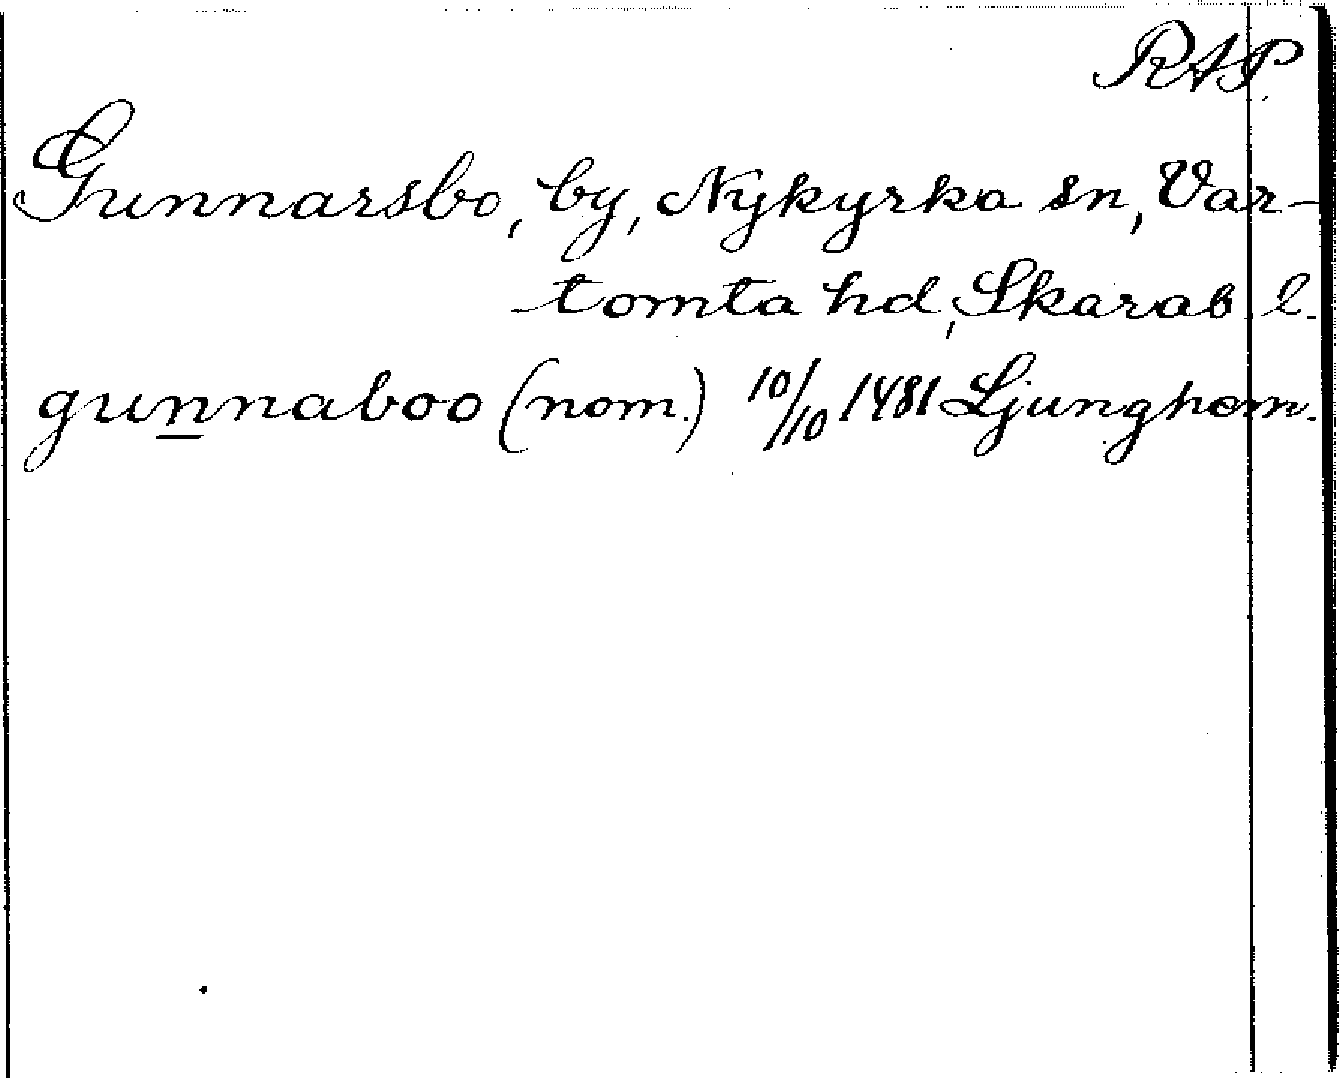 RAP.
Gunnarsbo, by, Nykyrka sn, Var-
tomta hd, Skarab l.
gunnaboo (nom.) 10/10 1481 Ljunghem.